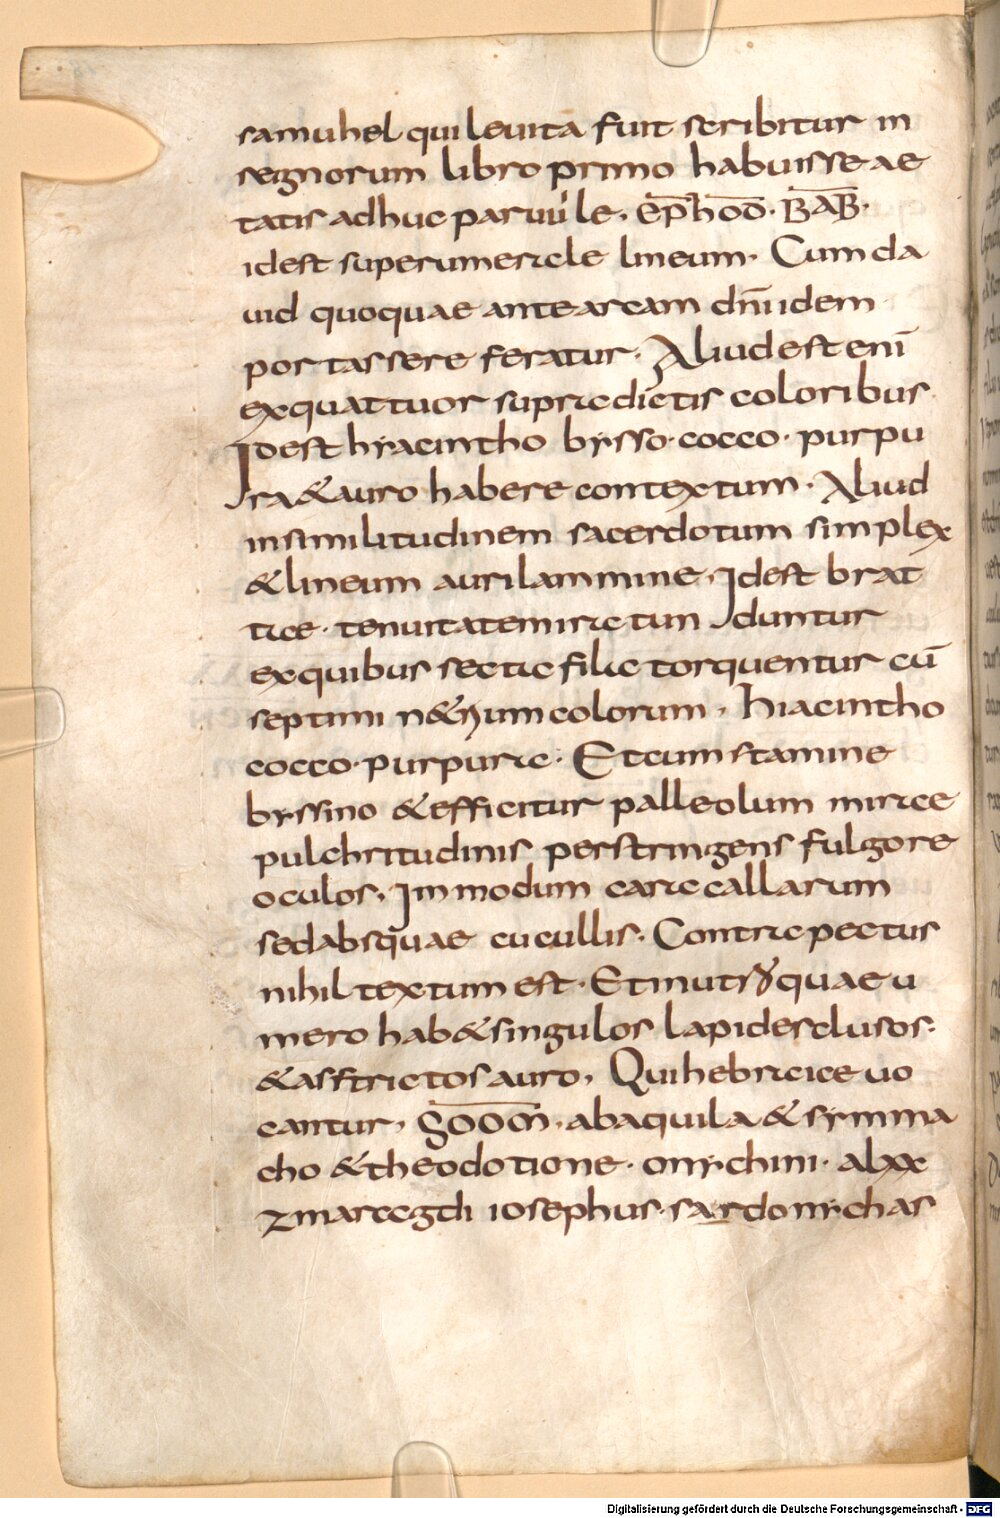 samuhel qui leuita fuit scribitur in
regnorum libro primo habuisse ae
tatis adhuc paruule. ep̄hōd̄. B̄AB̄.
idest superumercle lineum. Cumda
uid quoquae antearcam dn̄i idem
portassere feratur. Aliudest enī
exquattuor supradictis coloribus
Idest hyacintho bysso. cocco. purpu
ra&auro habere contextum. Aliud
insimilitudinem sacerdotum simplex
&lineum aurilammine, Idest brat
tice. tenuitatemiractim Iduntur
exquibus sectae filae torquentur cū
septimi n&ɲum colorum, hiacintho
cocco. purpurae. Etcum stamine
byssino &efficitur palleolum mirce
pulchritudinis perstringens fulgore
oculos, Immodum caraccallarum
sedabsquae cucullis. Contra pectus
nihil textum est. Etinutroquae u
mero hab&singulos lapidesclusos.
&asftrictos auro, Quihebraice uo
cantur, S̄ŌŌM̄, abaquila & symma
cho &theodotione. onychini. alxx
zmaracgdi iosephus. sardonychas
Digitalisierung gefördert durch die Deutsche Forschungsgemeinschaft - DFG